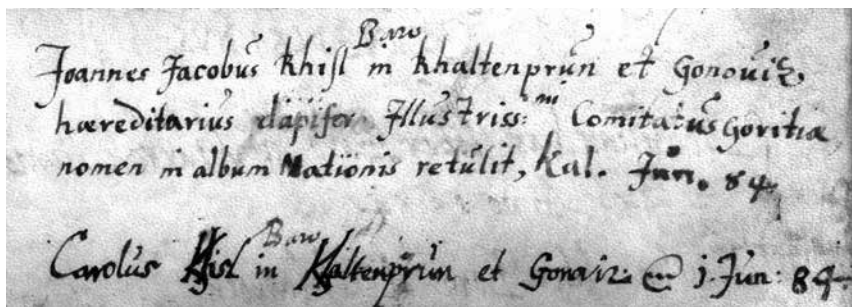 Baro
Joannes Jacobus Khisl in Khaltenprun et Gonouiz
hæreditarius dapifer Illustriss:mi Comitatus Goritiæ
nomen in album Nationis retulit, Kal. Jun. 84
Baro
Carolus Khisl in Khaltenprun et Gonaviz: 1. Jun: 84